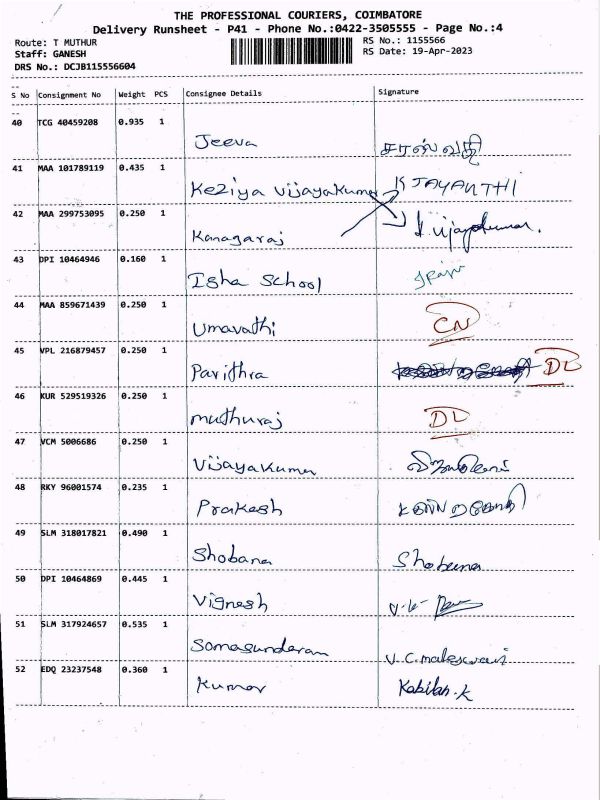 THE PROFESSIONAL COURIERS, COIMBATORE
Delivery Runsheet - P41 - Phone No.:0422-3505555 - Page No.:4
Route: T MUTHUR RS No.: 1155566
Staff: GANESH RS Date: 19-Apr-2023
DRS No.: DCJB115556604
S No Consignment No Weight PCS Consignee Details Signature
40 TCG 40459208 0.935 1 Jeeva சரஸ்வதி
41 MAA 101789119 0.435 1 Keziya Vijayakumar K JAYANTHI
42 MAA 299753095 0.250 1 Kanagaraj
43 DPI 10464946 0.160 1 Isha School
44 MAA 859671439 0.250 1 Umavathi CN
45 VPL 216879457 0.250 1 Pavithra DL
46 KUR 529519326 0.250 1 muthuraj DL
47 VCM 5006686 0.250 1 Vijayakumar
48 RKY 96001574 0.235 1 Prakash
49 SLM 318017821 0.490 1 Shobana Shobana
50 DPI 10464869 0.445 1 Vignesh
51 SLM 317924657 0.535 1 Somasundaram V.C. maheswari
52 EDQ 23237548 0.360 1 Kumar Kabilan.K